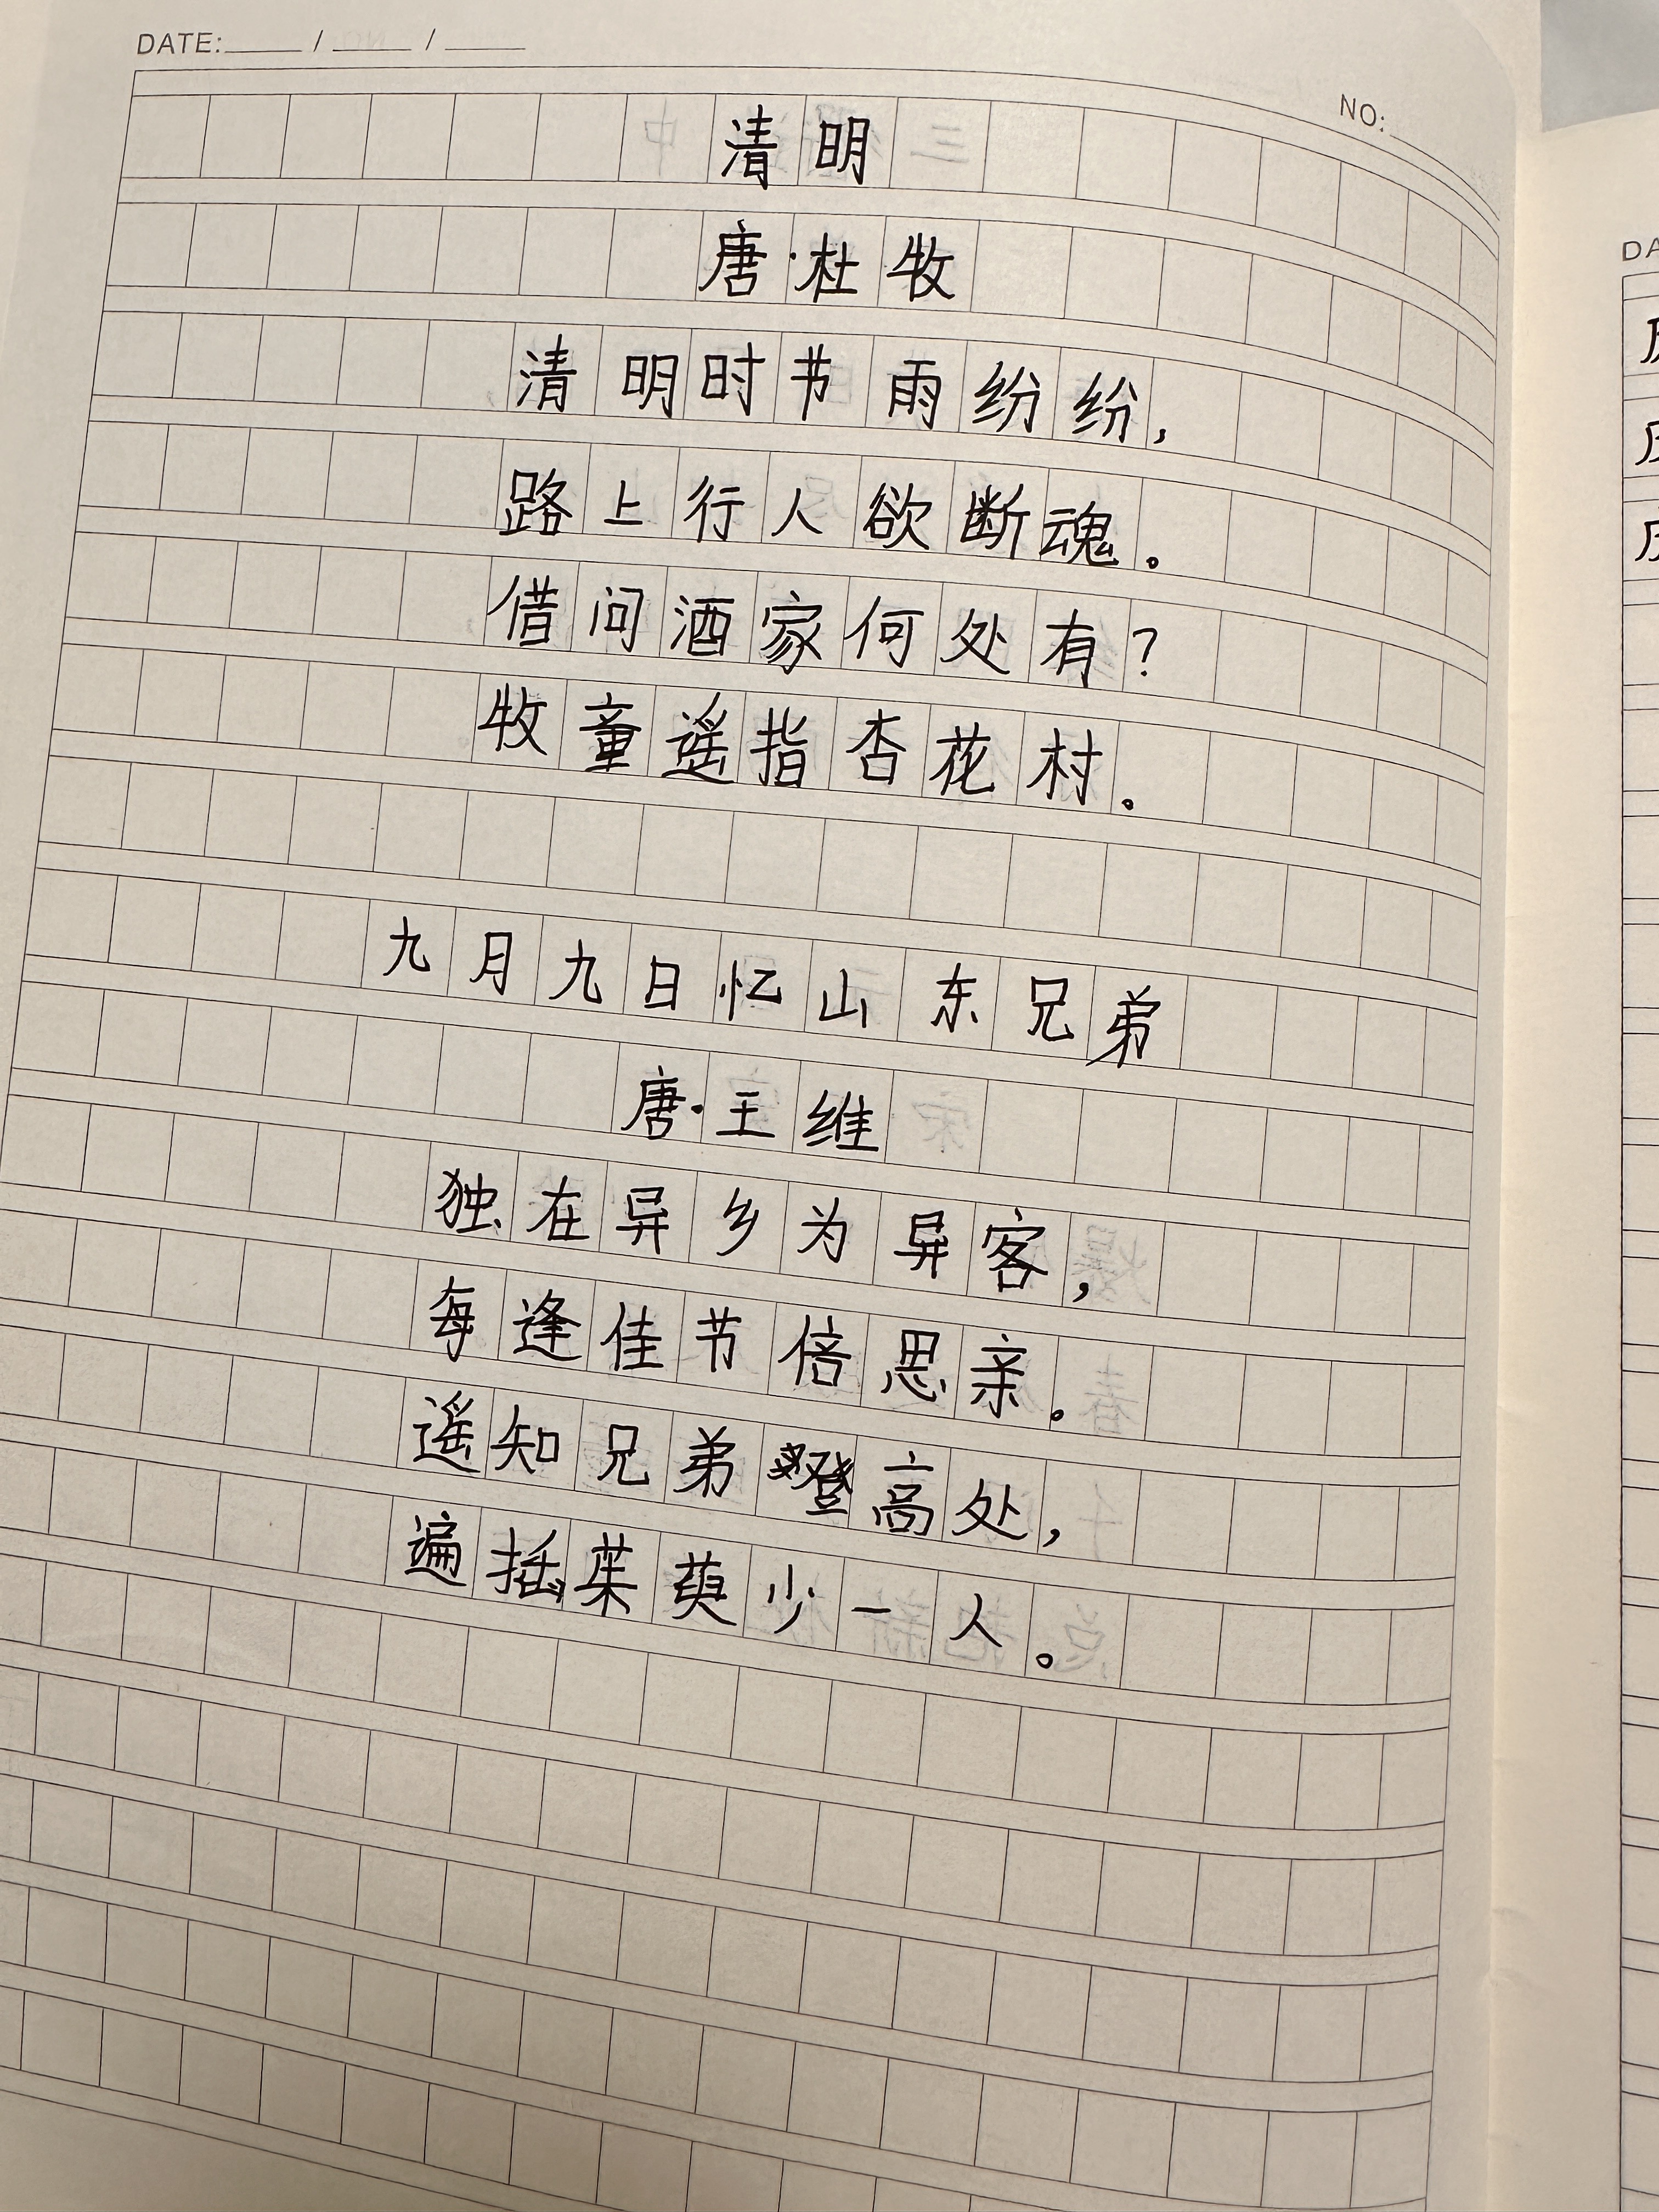 DATE: / /
NO:
清明
唐·杜牧
清明时节雨纷纷,
路上行人欲断魂。
借问酒家何处有?
牧童遥指杏花村。
九月九日忆山东兄弟
唐·王维
独在异乡为异客,
每逢佳节倍思亲。
遥知兄弟登高处,
遍插茱萸少一人。
DA